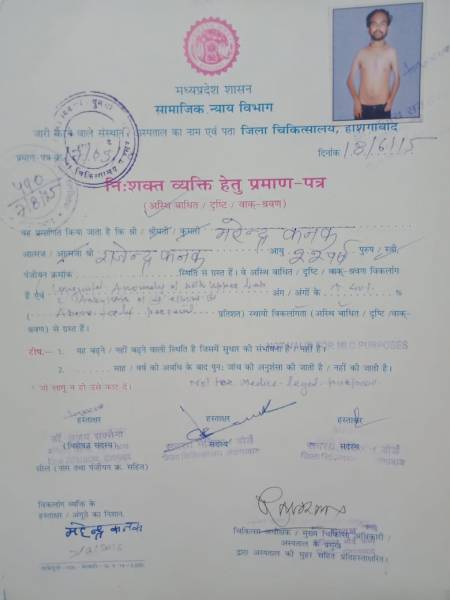 मध्यप्रदेश शासन
सामाजिक न्याय विभाग
जारी करने वाले संस्थान / अस्पताल का नाम एवं पता जिला चिकित्सालय, होशंगाबाद
प्रमाण-पत्र क्र. दिनांक 18/6/15
नि:शक्त व्यक्ति हेतु प्रमाण-पत्र
(अस्थि बाधित / दृष्टि / वाक्-श्रवण)
यह प्रमाणित किया जाता है कि श्री / श्रीमती / कुमारी नरेन्द्र कनक
आत्मज / आत्मजा श्री राजेन्द्र कनक आयु 22 वर्ष पुरुष / स्त्री,
पंजीयन क्रमांक स्थिति से ग्रस्त हैं। वे अस्थि बाधित / दृष्टि / वाक्-श्रवण विकलांग
हैं एवं Congenital Anomaly of both upper limb अंग / अंगों के %
प्रतिशत) स्थायी विकलांगता (अस्थि बाधित / दृष्टि / वाक्-
श्रवण) से ग्रस्त है।
NOT VALID FOR MLC PURPOSES
टीप.- 1. यह बढ़ने / नहीं बढ़ने वाली स्थिति है जिसमें सुधार की संभावना है / नहीं है।
2. माह / वर्ष की अवधि के बाद पुन: जांच की अनुशंसा की जाती है / नहीं की जाती है।
* जो लागू न हो उसे काट दें। Not for Medico-legal purpose
हस्ताक्षर हस्ताक्षर हस्ताक्षर
(विशेषज्ञ सदस्य) सदस्य सदस्य
सील (नाम तथा पंजीयन क्र. सहित)
विकलांग व्यक्ति के
हस्ताक्षर / अंगूठे का निशान.
नरेन्द्र कनक
चिकित्सा अधीक्षक / मुख्य चिकित्सा अधिकारी /
अस्पताल के प्रमुख
द्वारा अस्पताल की मुहर सहित प्रतिहस्ताक्षरित।